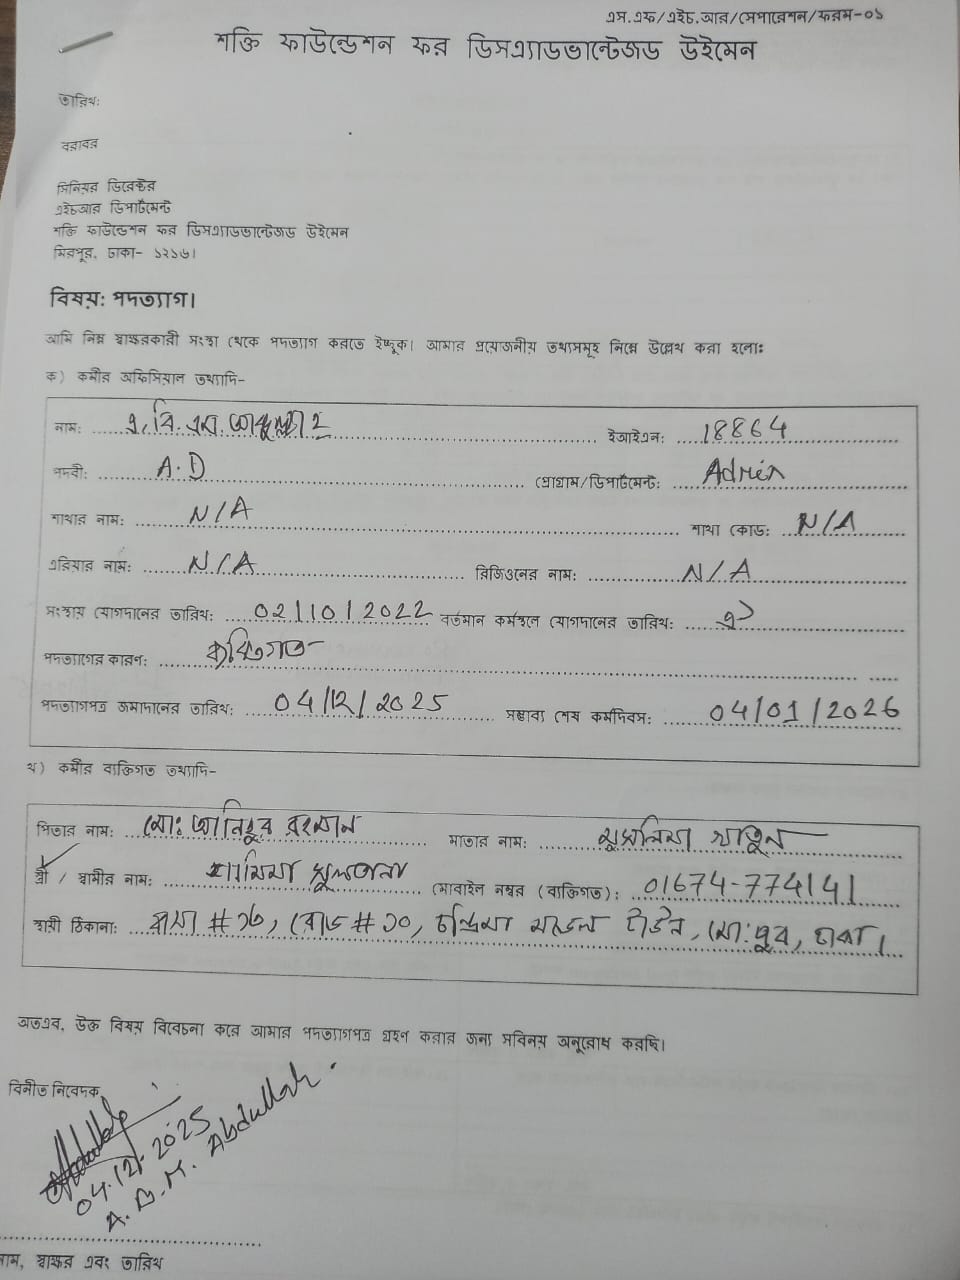 এস.এফ/এইচ.আর/সেপারেশন/ফরম-০১
শক্তি ফাউন্ডেশন ফর ডিসএ্যাডভান্টেজড উইমেন
তারিখ:
বরাবর
সিনিয়র ডিরেক্টর
এইচআর ডিপার্টমেন্ট
শক্তি ফাউন্ডেশন ফর ডিসএ্যাডভান্টেজড উইমেন
মিরপুর, ঢাকা- ১২১৬।
বিষয়: পদত্যাগ।
আমি নিম্ন স্বাক্ষরকারী সংস্থা থেকে পদত্যাগ করতে ইচ্ছুক। আমার প্রয়োজনীয় তথ্যসমূহ নিম্নে উল্লেখ করা হলো:
ক) কর্মীর অফিসিয়াল তথ্যাদি-
নাম: এ.বি.এম. আব্দুল্লাহ ইআইএন: 18864
পদবী: A.D প্রোগ্রাম/ডিপার্টমেন্ট: Admin
শাখার নাম: N/A শাখা কোড: N/A
এরিয়ার নাম: N/A রিজিওনের নাম: N/A
সংস্থায় যোগদানের তারিখ: 02/10/2022 বর্তমান কর্মস্থলে যোগদানের তারিখ: ঐ
পদত্যাগের কারন: ব্যক্তিগত
পদত্যাগপত্র জমাদানের তারিখ: 04/12/2025 সম্ভাব্য শেষ কর্মদিবস: 04/01/2026
খ) কর্মীর ব্যক্তিগত তথ্যাদি-
পিতার নাম: মো: আনিছুর রহমান মাতার নাম: মুসলিমা খাতুন
স্ত্রী / স্বামীর নাম: শামিমা সুলতানা মোবাইল নম্বর (ব্যক্তিগত): 01674-774141
স্থায়ী ঠিকানা: বাসা # ১৬, রোড # ১০, চন্দ্রিমা মডেল টাউন, মো:পুর, ঢাকা।
অতএব, উক্ত বিষয় বিবেচনা করে আমার পদত্যাগপত্র গ্রহন করার জন্য সবিনয় অনুরোধ করছি।
বিনীত নিবেদক
04.12.2025
A.B.M. Abdullah
নাম, স্বাক্ষর এবং তারিখ